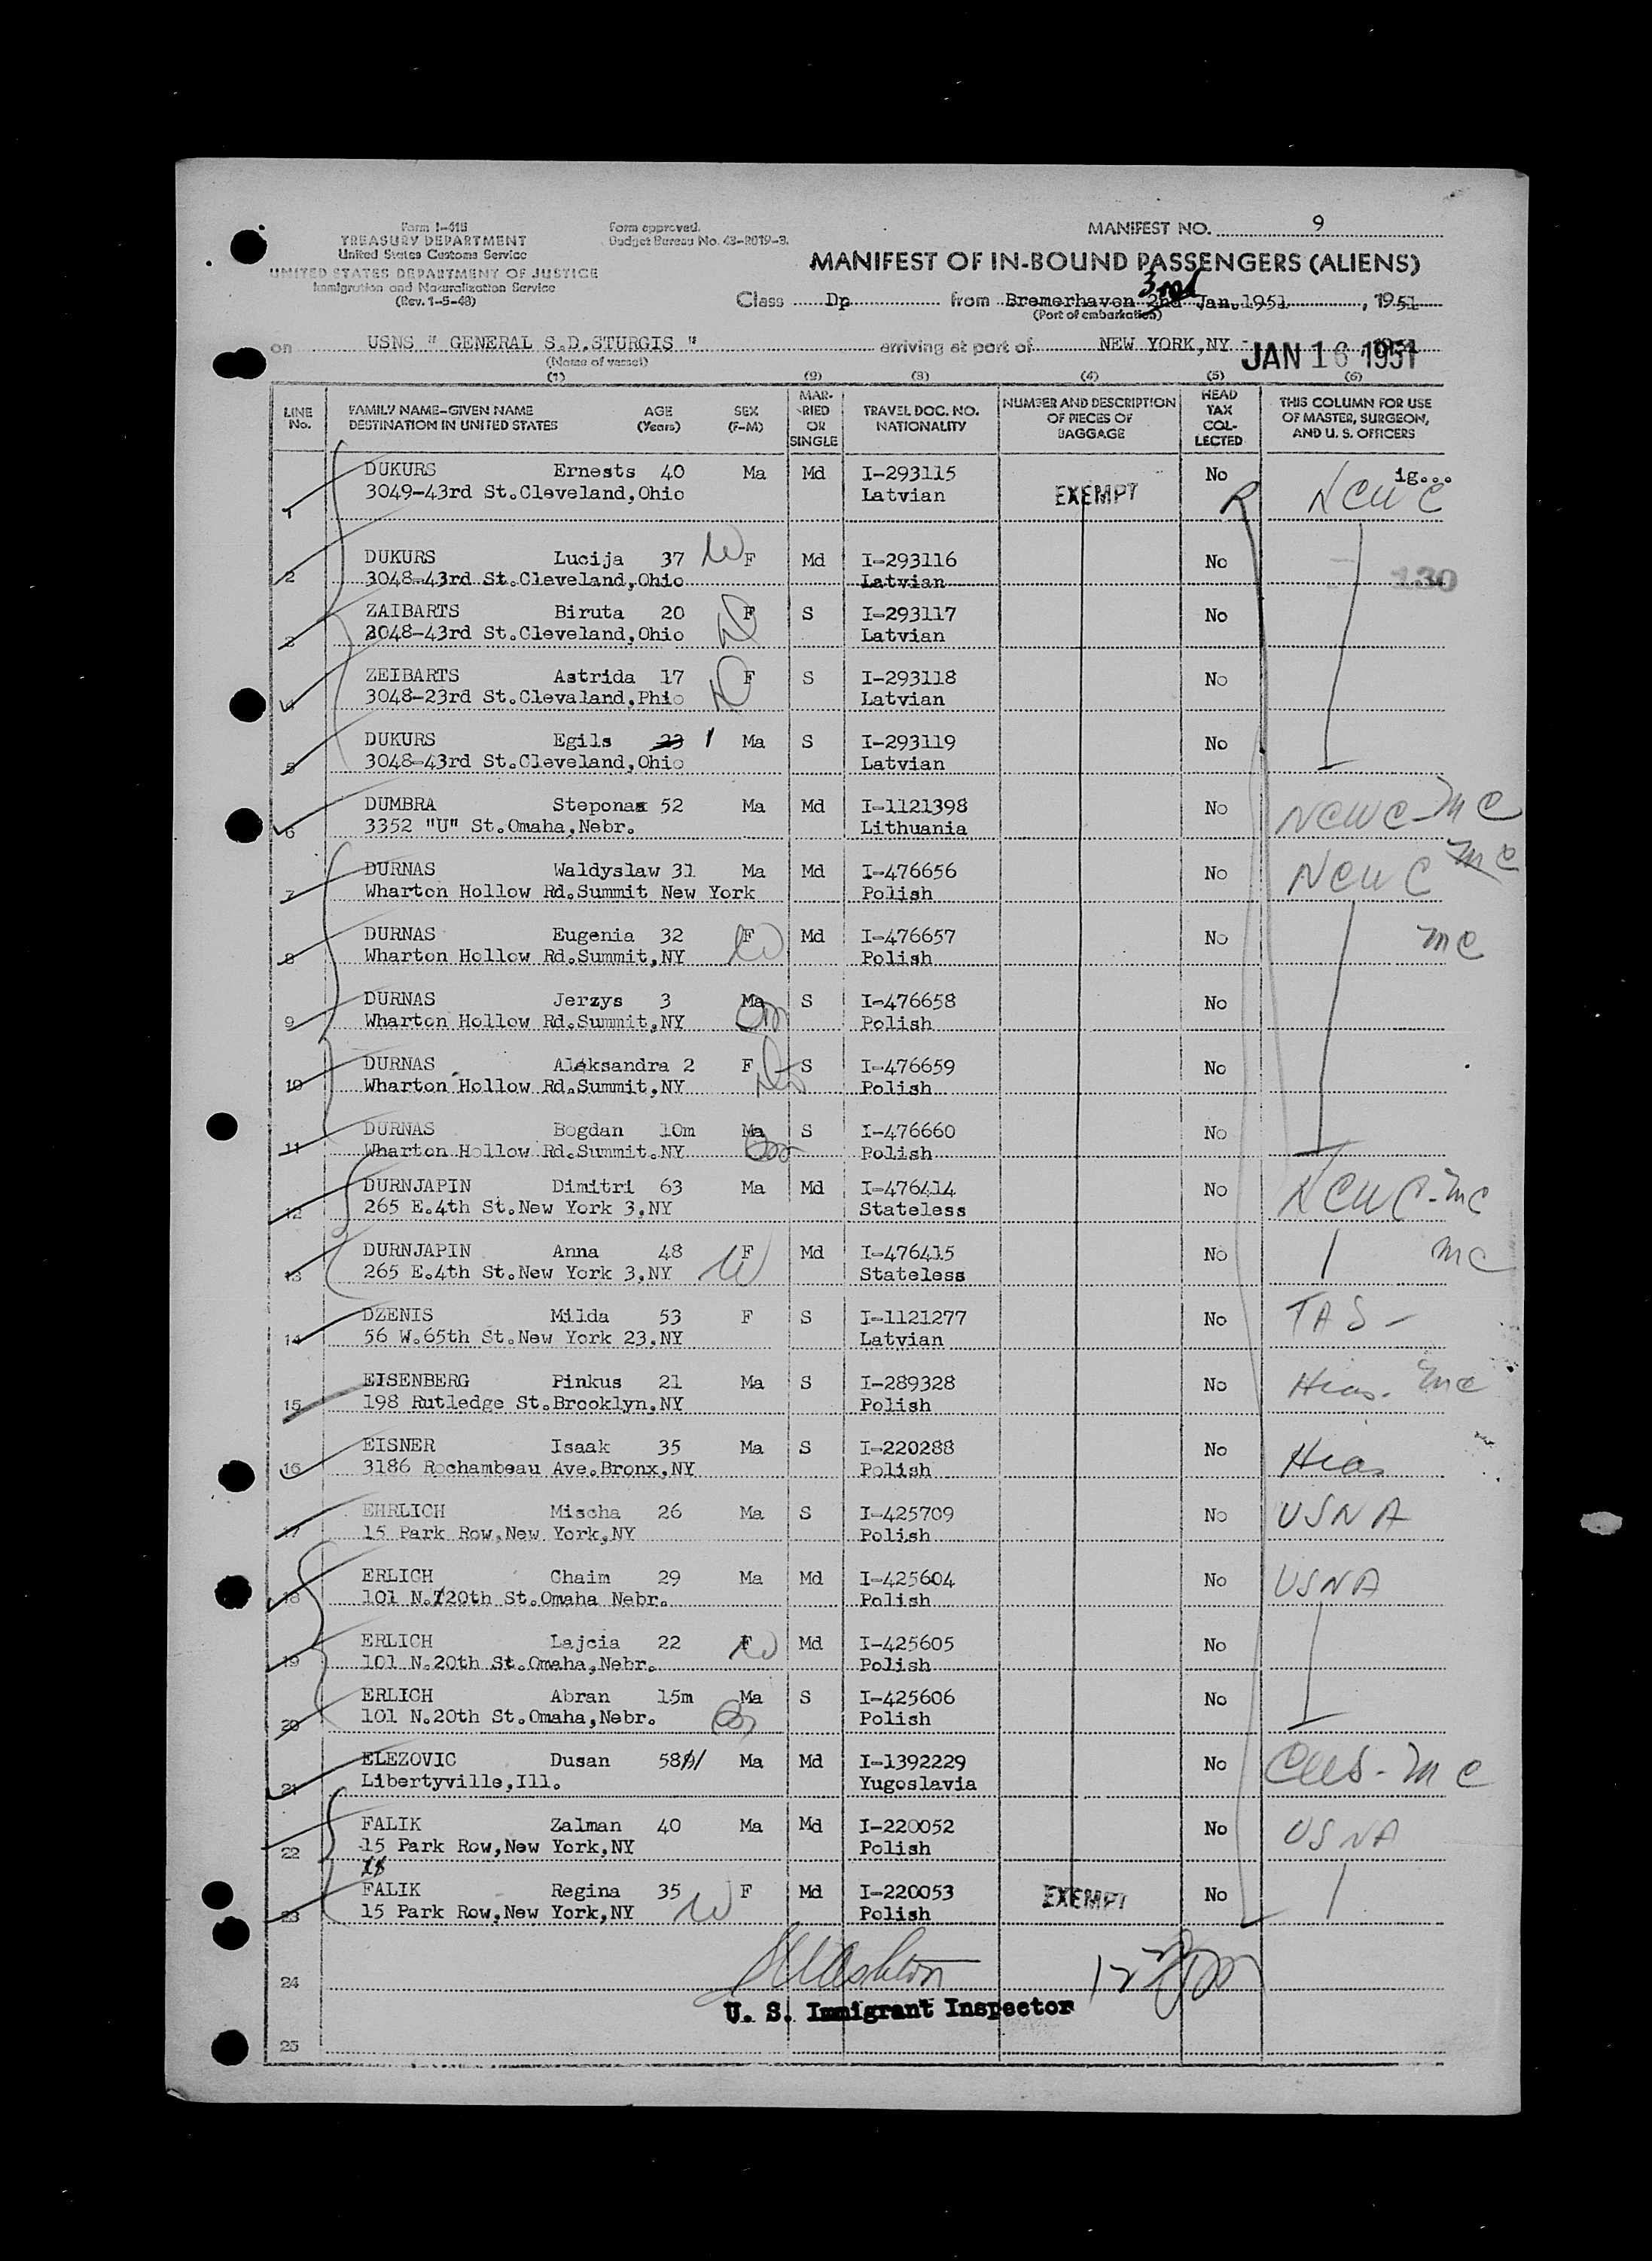 Form I-415
TREASURY DEPARTMENT
United States Customs Service
UNITED STATES DEPARTMENT OF JUSTICE
Immigration and Naturalization Service
(Rev. 1-5-48)
Form approved.
Budget Bureau No. 43-R019-3.
MANIFEST NO. 9
MANIFEST OF IN-BOUND PASSENGERS (ALIENS)
3rd
Class Dp from Bremerhaven 2nd Jan.1951, 1951
(Port of embarkation)
on USNS " GENERAL S.D.STURGIS " arriving at port of NEW YORK,NY JAN 16 1951
(Name of vessel)
(1) (2) (3) (4) (5) (6)
LINE No. FAMILY NAME-GIVEN NAME DESTINATION IN UNITED STATES AGE (Years) SEX (F-M) MAR-RIED OR SINGLE TRAVEL DOC. NO. NATIONALITY NUMBER AND DESCRIPTION OF PIECES OF BAGGAGE HEAD TAX COL-LECTED THIS COLUMN FOR USE OF MASTER, SURGEON, AND U. S. OFFICERS
DUKURS Ernests 40 Ma Md I-293115 No ig...
1 3049-43rd St.Cleveland,Ohio Latvian EXEMPT R NCWC
DUKURS Lucija 37 W F Md I-293116 No
2 3048-43rd St.Cleveland,Ohio Latvian 130
ZAIBARTS Biruta 20 F S I-293117 No
3 3048-43rd St.Cleveland,Ohio D Latvian
ZEIBARTS Astrida 17 F S I-293118 No
4 3048-23rd St.Clevaland,Phio D Latvian
DUKURS Egils 23 1 Ma S I-293119 No
5 3048-43rd St.Cleveland,Ohio Latvian
DUMBRA Steponas 52 Ma Md I-1121398 No NCWC-mc
6 3352 "U" St.Omaha,Nebr. Lithuania
DURNAS Waldyslaw 31 Ma Md I-476656 No NCWC mc
7 Wharton Hollow Rd.Summit New York Polish
DURNAS Eugenia 32 F Md I-476657 No mc
8 Wharton Hollow Rd.Summit,NY W Polish
DURNAS Jerzys 3 Ma S I-476658 No
9 Wharton Hollow Rd.Summit,NY Polish
DURNAS Aleksandra 2 F S I-476659 No
10 Wharton Hollow Rd.Summit,NY Polish
DURNAS Bogdan 10m Ma S I-476660 No
11 Wharton Hollow Rd.Summit.NY Polish
DURNJAPIN Dimitri 63 Ma Md I-476414 No NCWC-mc
12 265 E.4th St.New York 3,NY Stateless
DURNJAPIN Anna 48 F Md I-476415 No mc
13 265 E.4th St.New York 3,NY W Stateless
DZENIS Milda 53 F S I-1121277 No TAS-
14 56 W.65th St.New York 23,NY Latvian
EISENBERG Pinkus 21 Ma S I-289328 No Hias. mc
15 198 Rutledge St.Brooklyn,NY Polish
EISNER Isaak 35 Ma S I-220288 No Hias
16 3186 Rochambeau Ave.Bronx,NY Polish
EHRLICH Mischa 26 Ma S I-425709 No USNA
17 15 Park Row,New York,NY Polish
ERLICH Chaim 29 Ma Md I-425604 No USNA
18 101 N.20th St.Omaha Nebr. Polish
ERLICH Lajcia 22 F W Md I-425605 No
19 101 N.20th St.Omaha,Nebr. Polish
ERLICH Abran 15m Ma S I-425606 No
20 101 N.20th St.Omaha,Nebr. Polish
ELEZOVIC Dusan 58 Ma Md I-1392229 No CWS-mc
21 Libertyville,Ill. Yugoslavia
FALIK Zalman 40 Ma Md I-220052 No USNA
22 15 Park Row,New York,NY Polish
FALIK Regina 35 W F Md I-220053 EXEMPT No
23 15 Park Row,New York,NY Polish
24
U. S. Immigrant Inspector
25